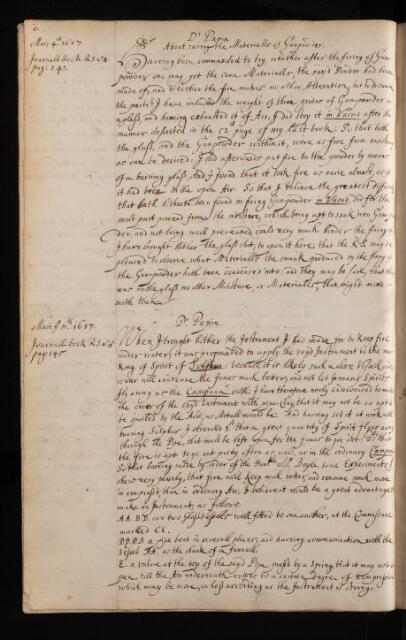 May 4th 1687.
Journall Book R.S. v:8
pag: 142.
Dr Papin
About saving the Materialls of Gunpowder.
Having been commanded to try, whether after the firing of Gun-
powder one may get the same Materialls, the sayd Powder had been
made of; and whether the fire makes no other Alteration, but to disunite
the parts? I have inclosed the weight of three grains of Gunpowder in
a glass, and having exhausted it of Air, I did stop it in Vacuo after the
manner described in the 52th page of my last book. So that both
the glass, and the Gunpowder within it, were as free from
as can be desired: I did afterwards put fire to the powder by means
of a burning glass, and I found that it took fire as easie almost, as if
it had been in the open Air. So that I believe the greatest difficulty
that hath hitherto been found in firing Gunpowder in Vacuo, did for the
most part proceed from the moisture, which being apt to soak into Gunpow-
der, and not being well prevented could very much hinder the firing of
I have brought hither the glass shut, to open it here, that the R.S. may be
pleased to observe what Materialls the smoak produced by the firing of
the Gunpowder hath been condensed into: and they may be sure, that there
was in the glass no other Moisture, or Materialls, that might mixe
with them.
May 11th 1687.
Journall book R.S. v:8
pag: 145.
Dr Papin.
When I brought hither the Instrument I has made for to keep fire
under water; it was propounded to apply the sayd Instrument to the ma-
king of Spirit of Sulphur: because it is likely such a close Vessel
water will condense the fumes much better, and not let so many Spirits
fly away as the Campana doth: I have therefore newly endeavoured to make
the cover of the sayd Instrument with pipe-clay, that it may not be so apt to
be spoiled by the Acid, as Metall would be: And having set it at work with
burning Sulphur I observed that a great quantity of Spirit flyes away
through the Pipe, that must be left open for the fumes to goe out: So that
the fire is apt to go out pretty often as well, as in the ordinary Campana
So that having made by order of the Honble Mr Boyle some Experiments
shew very plainly, that fire will keep much better, and consume much more
in compress'd than in ordinary Air, I believe it would be a great advantage to
make an Instrument, as follows.
AA. BB. are two Glass Vessels well fitted to one another, at the Commissure
marked CC.
DD. DD. a pipe bent in severall places, and having communication with the
Vessel AA. as the shank of a funnell.
E. a valve at the top of the sayd Pipe prest by a Spring, that it may not o-
pen, till the Air underneath comes to a certain Degree of Compression
which may be more, or less according as the Instrument is strong.